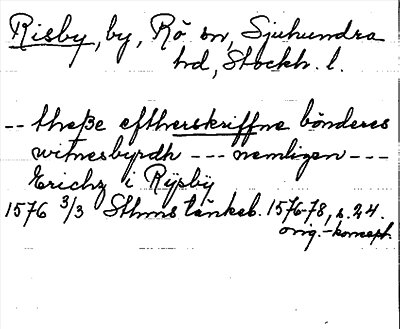 Risby, by, Rö sn, Sjuhundra
hd, Stockh. l.
-- theße eftherskriffne bönderes
witnesbyrdh --- nemligen ---
Erichz i Rÿsbÿ
1576 3/3 Sthms tänkeb. 1576-78, s. 24.
orig.-koncept.